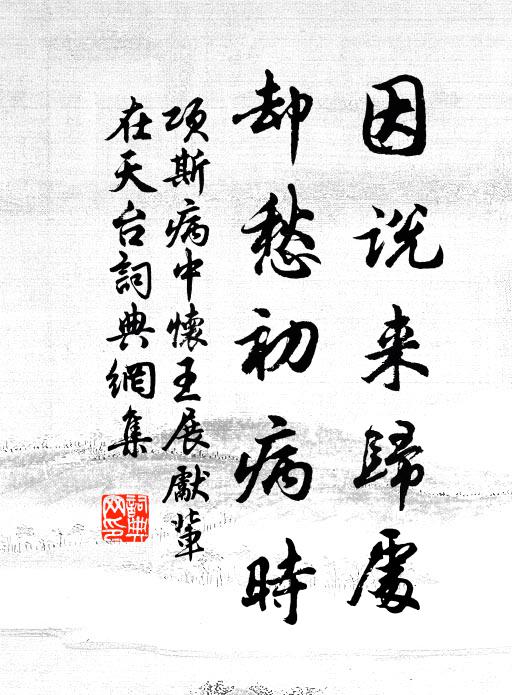 因说来歸處
却愁初病時
项斯病中懷王展獻輩
在天台詞典網集
詞典网印